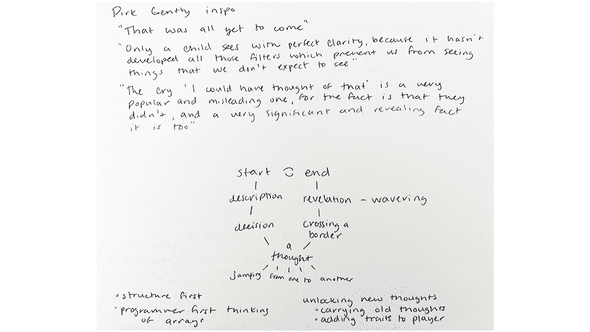 Dirk Gently inspo
"That was all yet to come"
"Only a child sees with perfect clarity, because it hasn't
developed all those filters which prevent us from seeing
things that we don't expect to see"
"The cry 'I could have thought of that' is a very
popular and misleading one, for the fact is that they
didn't, and a very significant and revealing fact
it is too"
start end
description revelation - wavering
decision crossing a
border
a
thought
jumping from one to another
• structure first
• programmer first thinking
of arrays
unlocking new thoughts
• carrying old thoughts
• adding traits to player